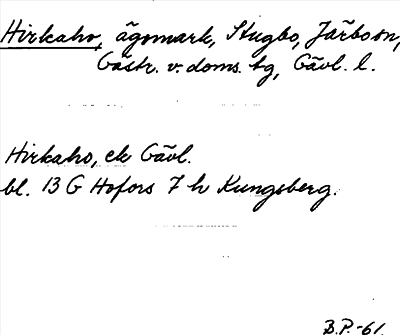 Hirkaho, ägomark, Stugbo, Järbo sn,
Gästr. v. doms. tg, Gävl. l.
Hirkaho, ek Gävl.
bl. 13 G Hofors 7 h Kungsberg.
B.P.-61.